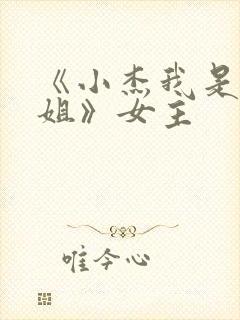 《小杰我是
姐》女主
唯今心